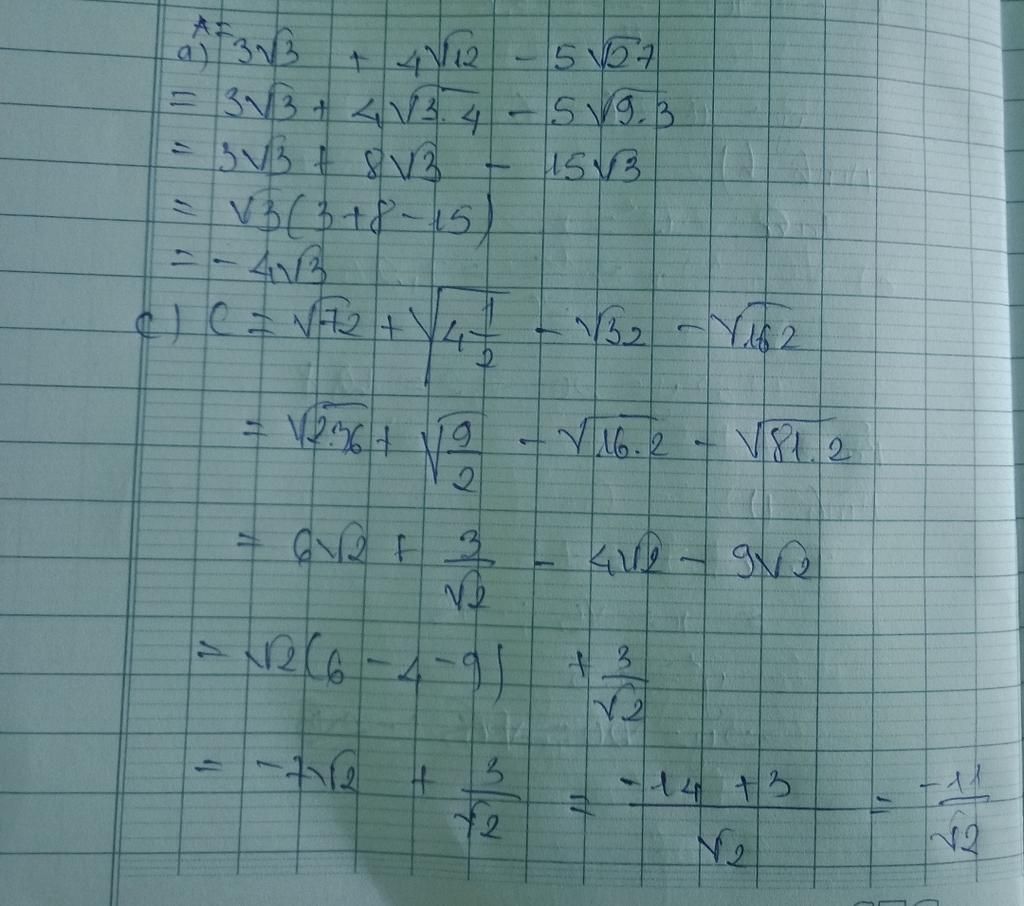 A=
a) 3√3 + 4√12 - 5√27
= 3√3 + 4√3.4 - 5√9.3
= 3√3 + 8√3 - 15√3
= √3(3+8-15)
= -4√3
c) C = √72 + √4 1/2 - √32 - √162
= √2.36 + √9/2 - √16.2 - √81.2
= 6√2 + 3/√2 - 4√2 - 9√2
= √2(6 - 4 - 9) + 3/√2
= -7√2 + 3/√2 = -14 + 3/√2 = -11/√2